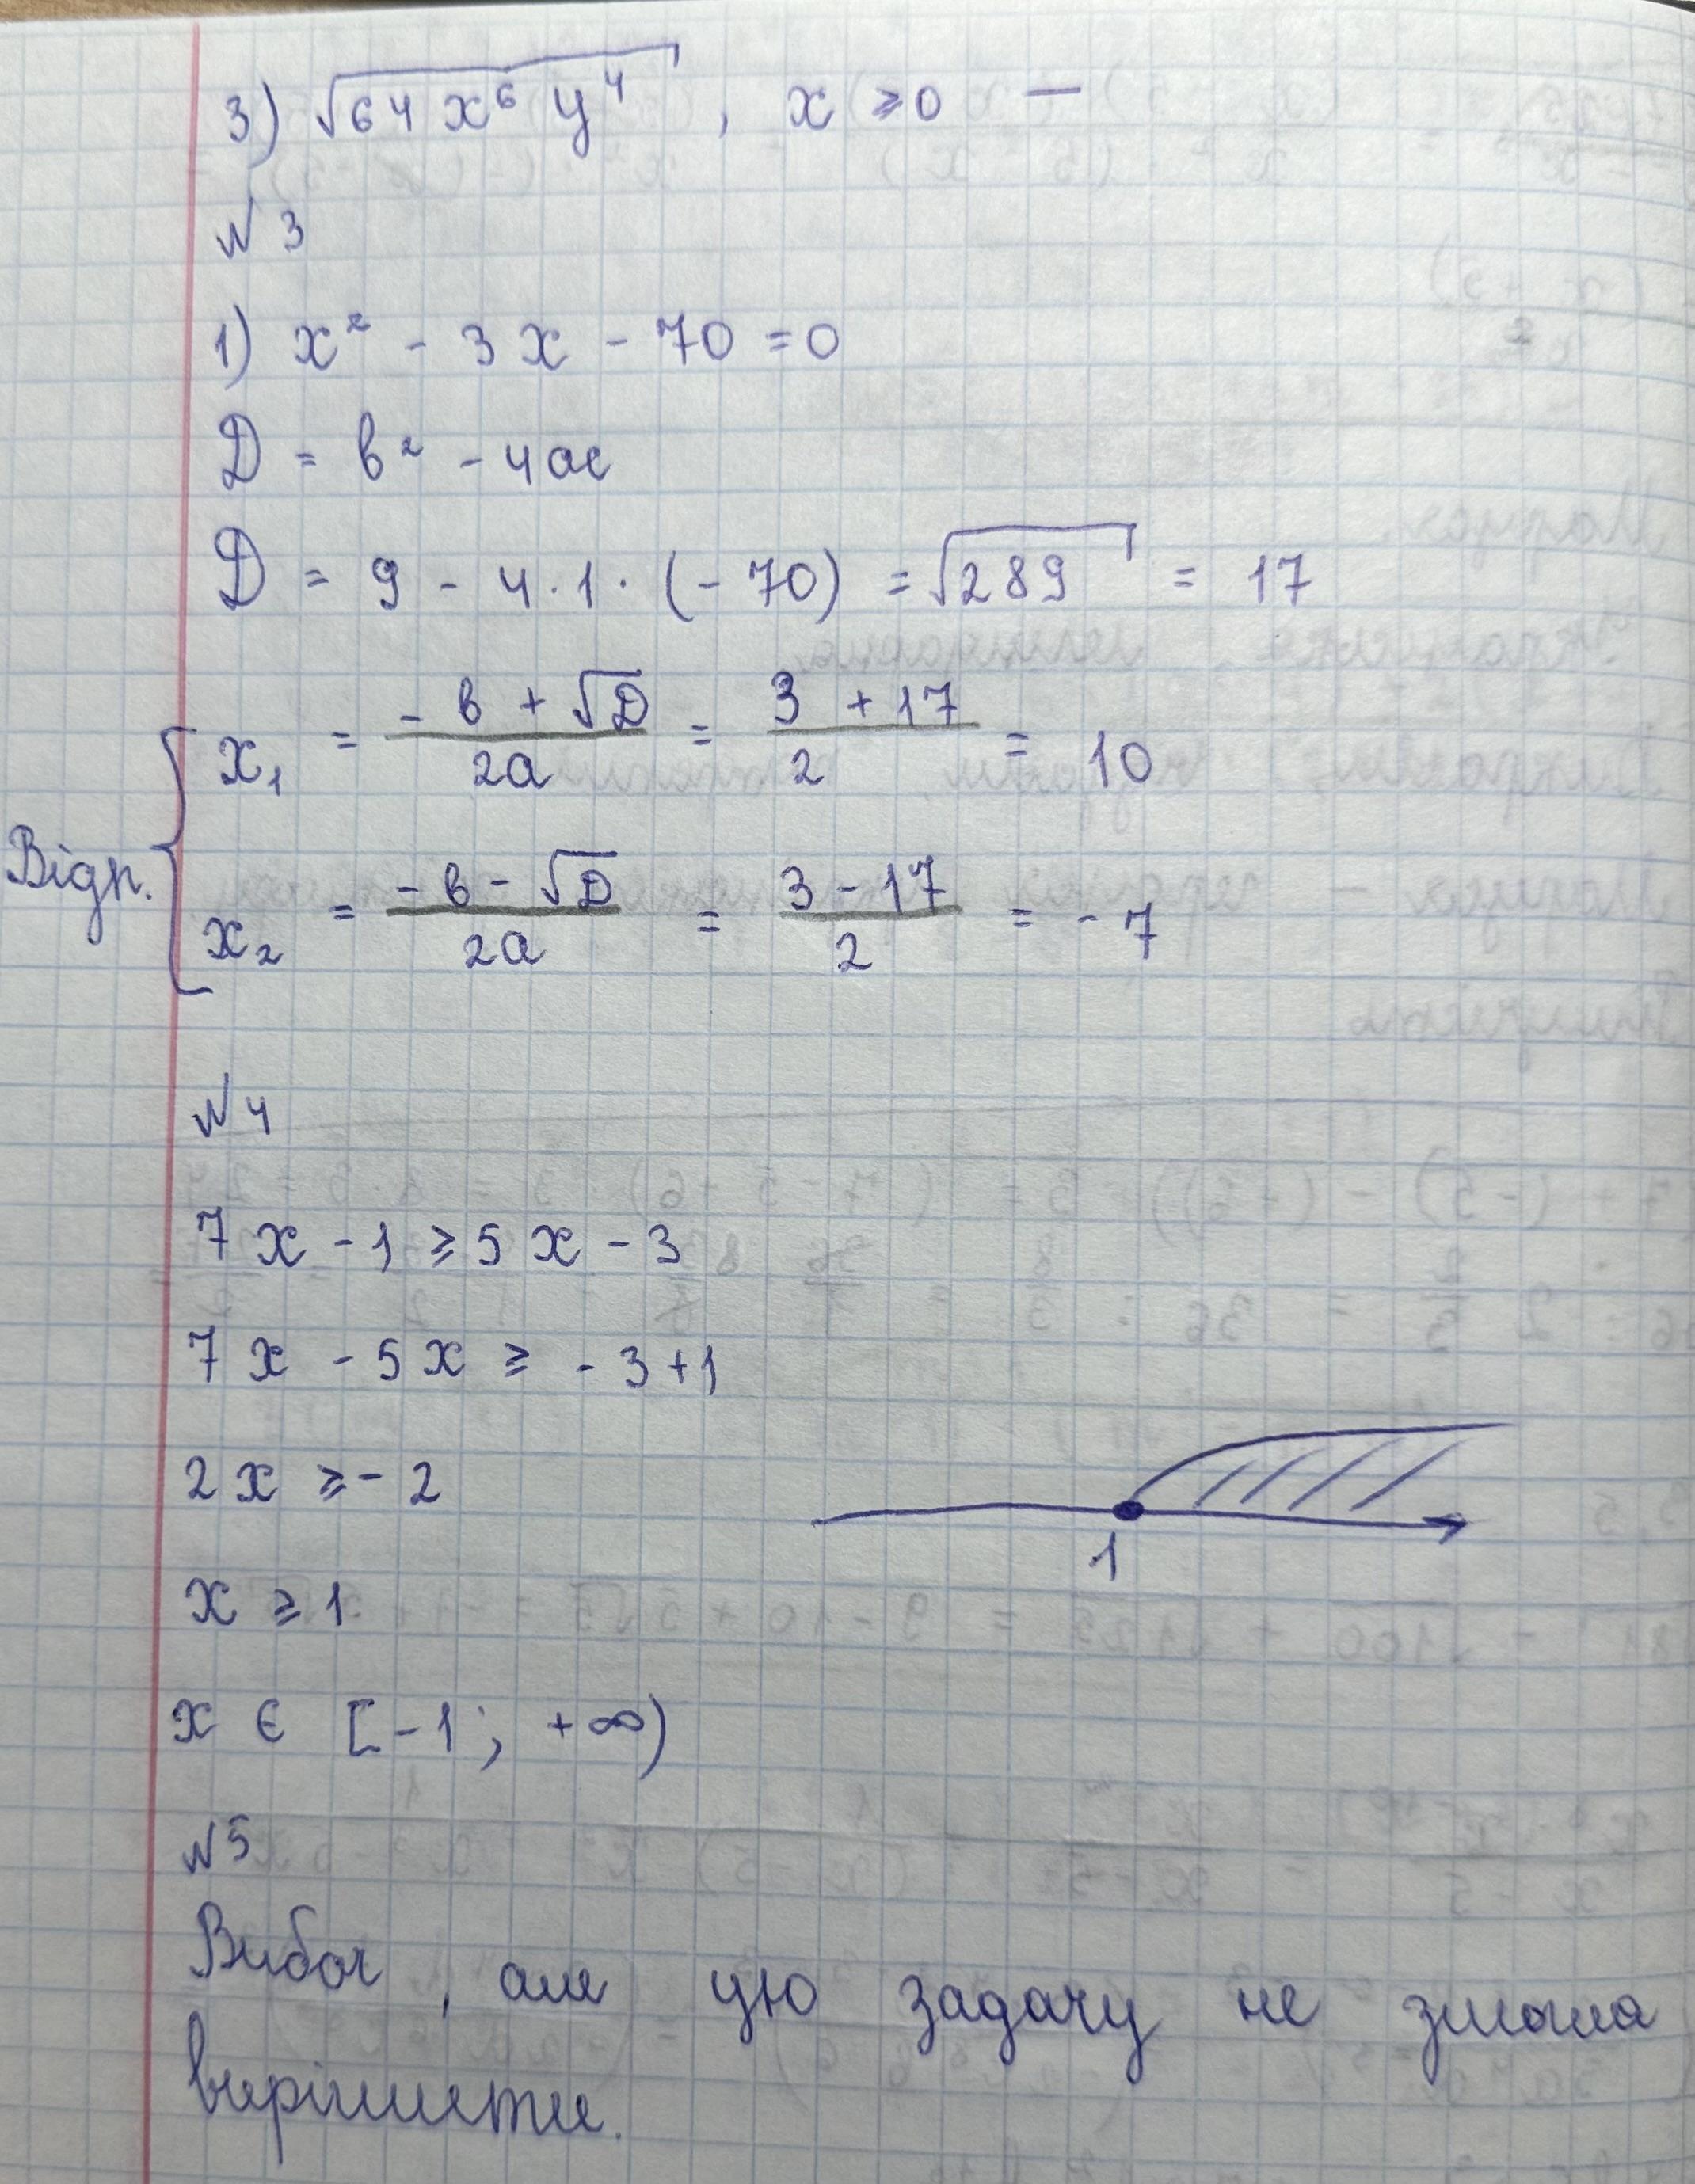 3) √64x⁶y⁴ , x ≥ 0 —
№3
1) x² - 3x - 70 = 0
D = b² - 4ac
D = 9 - 4·1·(-70) = √289 = 17
x₁ = (-b + √D)/2a = (3 + 17)/2 = 10
Відп.
x₂ = (-b - √D)/2a = (3 - 17)/2 = -7
№4
7x - 1 ≥ 5x - 3
7x - 5x ≥ -3+1
2x ≥ -2
1
x ≥ 1
x ∈ [-1; +∞)
№5
Вибач, але цю задачу не змогла
вирішити.